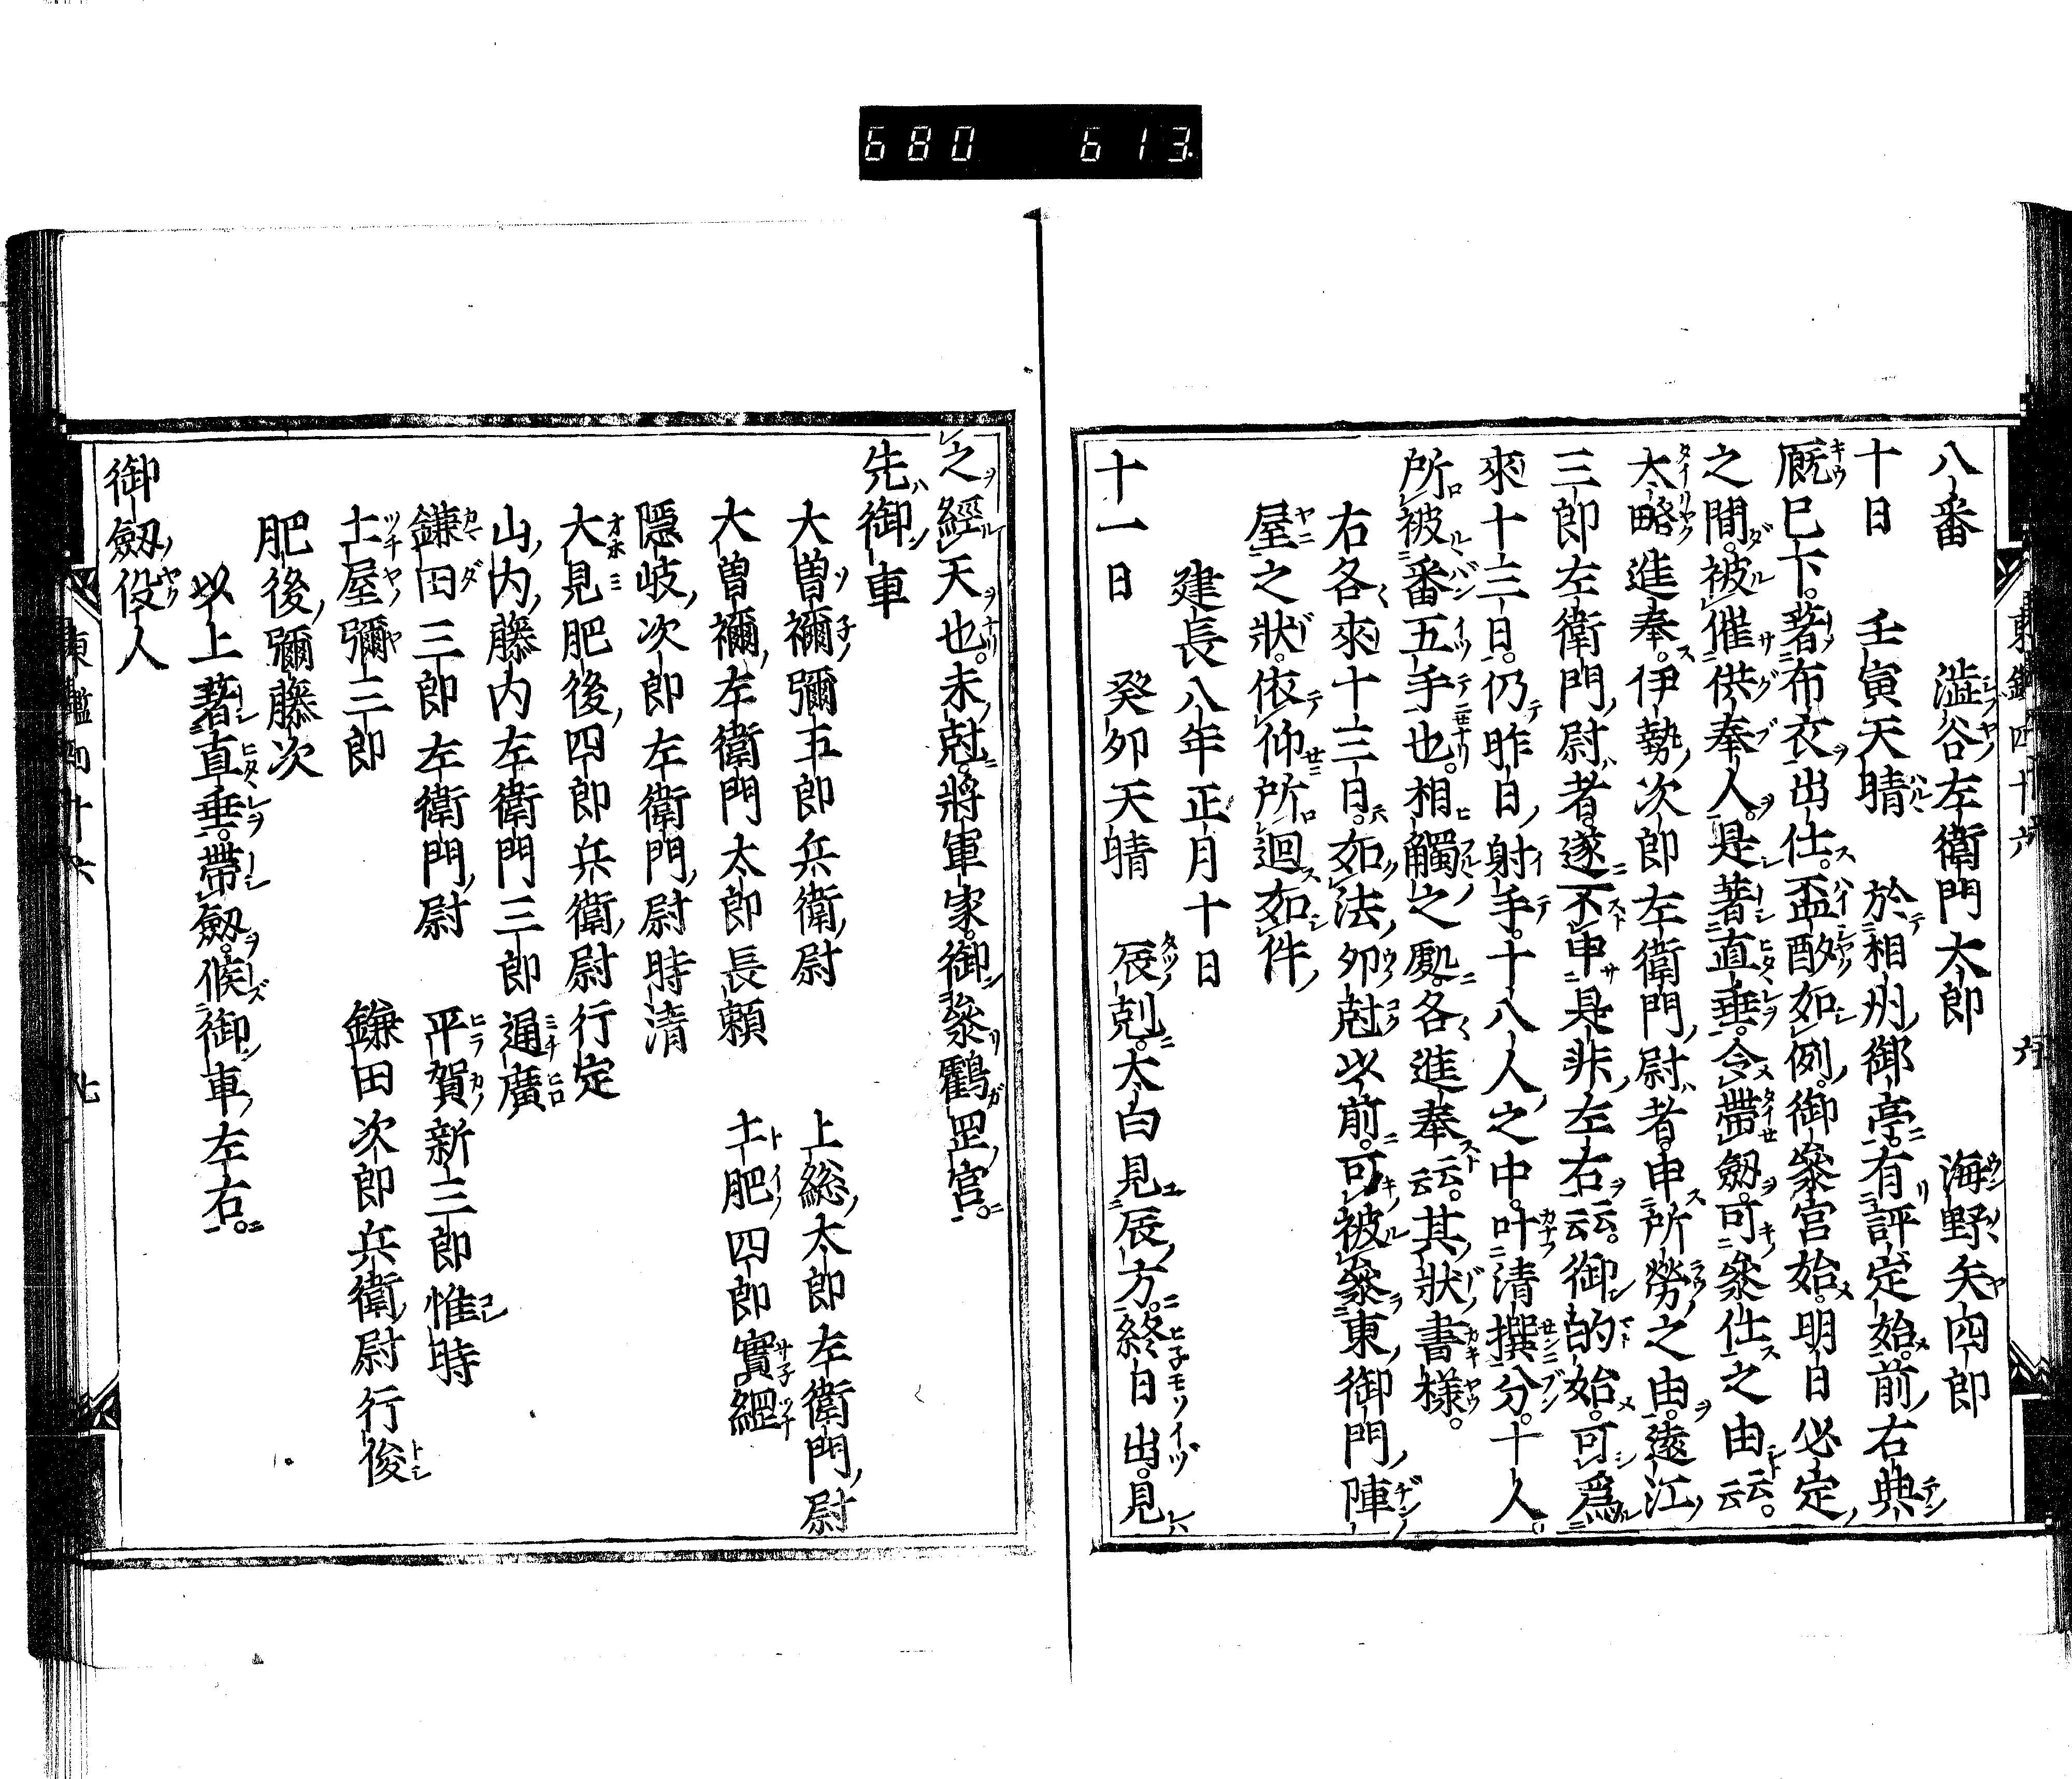 680 613
八番 澁谷左衛門太郎 海野矢四郎
十日 壬寅天晴 於相州御亭有評定始前右典
厩已下著布衣出仕盃酌如例御參宮始明日必定
之間被催供奉人是著直垂令帶劔可參仕之由云云
太略進奉伊勢次郎左衛門尉者申所勞之由遠江
三郎左衛門尉者遂不申是非左右云云御的始可爲
來十三日仍昨日射手十八人之中叶清撰分十人
所被番五手也相觸之處各進奉云云其狀書樣
右各來十三日如法卯尅以前可被參東御門陣
屋之狀依仰所迴如件
建長八年正月十日
十一日 癸卯天晴 辰剋太白見辰方終日出見
之經天也未尅將軍家御參鶴岡宮
先御車
大曽禰彌五郎兵衛尉 上総太郎左衛門尉
大曽禰左衛門太郎長頼 土肥四郎實綱
隱岐次郎左衛門尉時清
大見肥後四郎兵衛尉行定
山内藤内左衛門三郎通廣
鎌田三郎左衛門尉 平賀新三郎惟時
土屋彌三郎 鎌田次郎兵衛尉行俊
肥後彌藤次
以上著直垂帶劔候御車左右
御劔役人
東鑑四十六 七